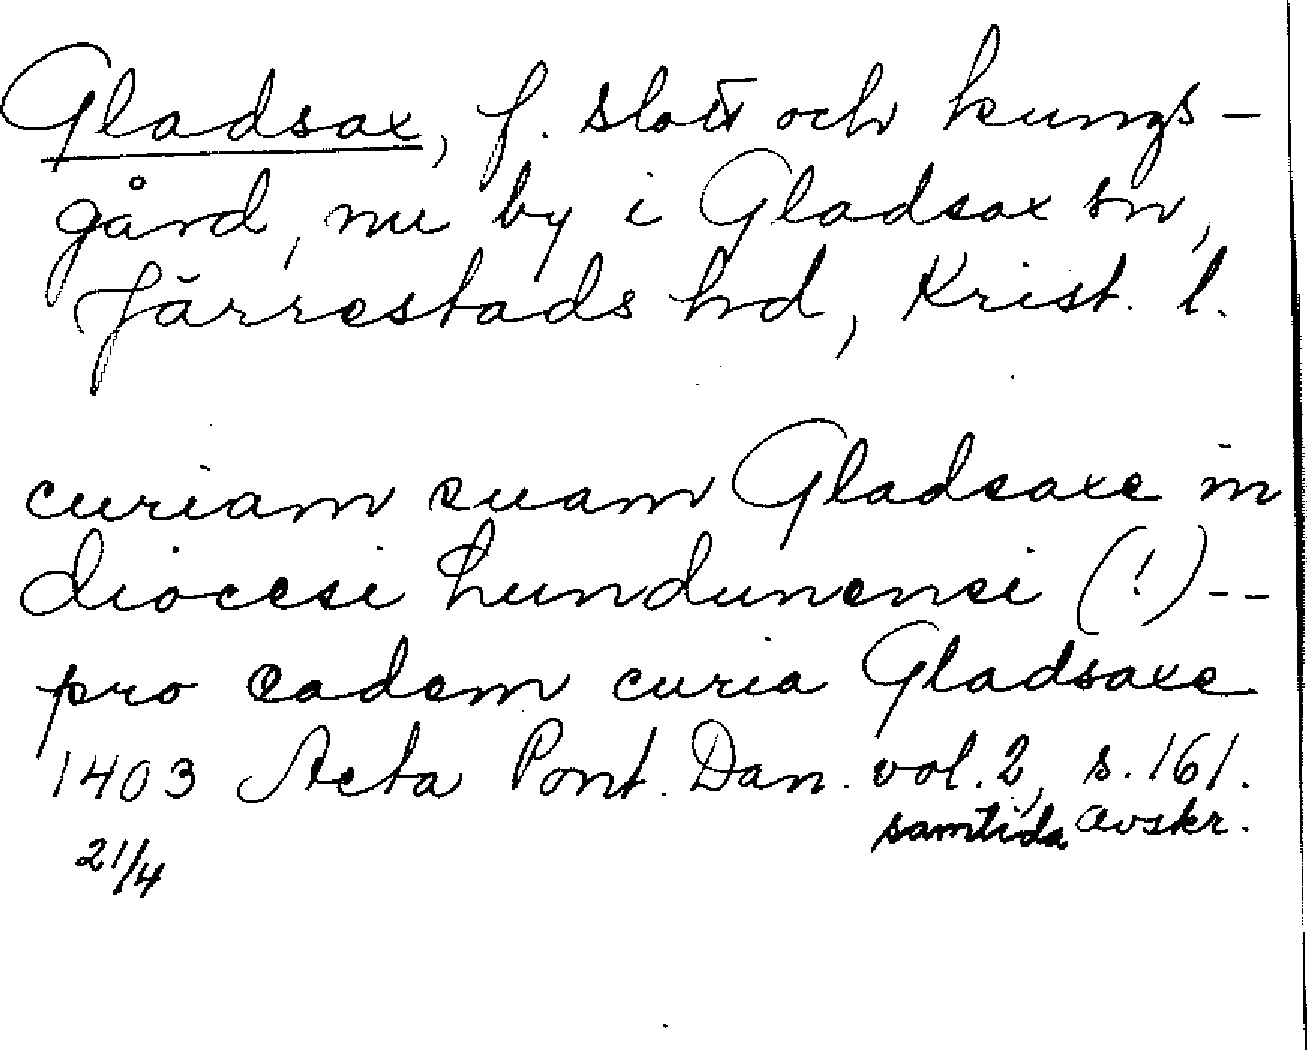 Gladsax, f. slott och kungs-
gård, nu by i Gladsax sn,
Järrestads hd, Krist. l.
curiam suam Gladsaxe in
diocesi Lundunensi (!) --
pro eadem curia Gladsaxe
1403 Acta Pont. Dan. vol. 2, s. 161.
21/4 samtida avskr.